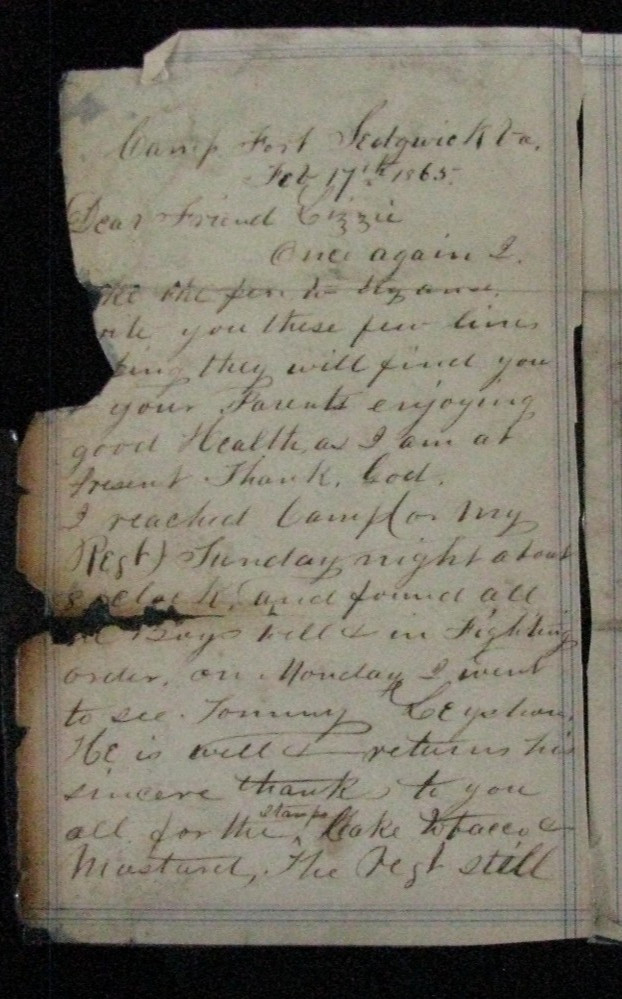 Camp Fort Sedgwick Va.
Feb 17th 1865.
Dear Friend Lizzie
Once again I.
the pen to
you these few lines
they will find you
your Parents enjoying
good Health, as I am at
present Thank. God.
I reached Camp (or my
Regt) Sunday night about
8 oclock, and found all
Boys well & in Fighting
order, on Monday I went
to see Tommy
He is well & returns his
sincere thanks to you
all for the stamps Cake tobacco &
Mustard, The Regt still